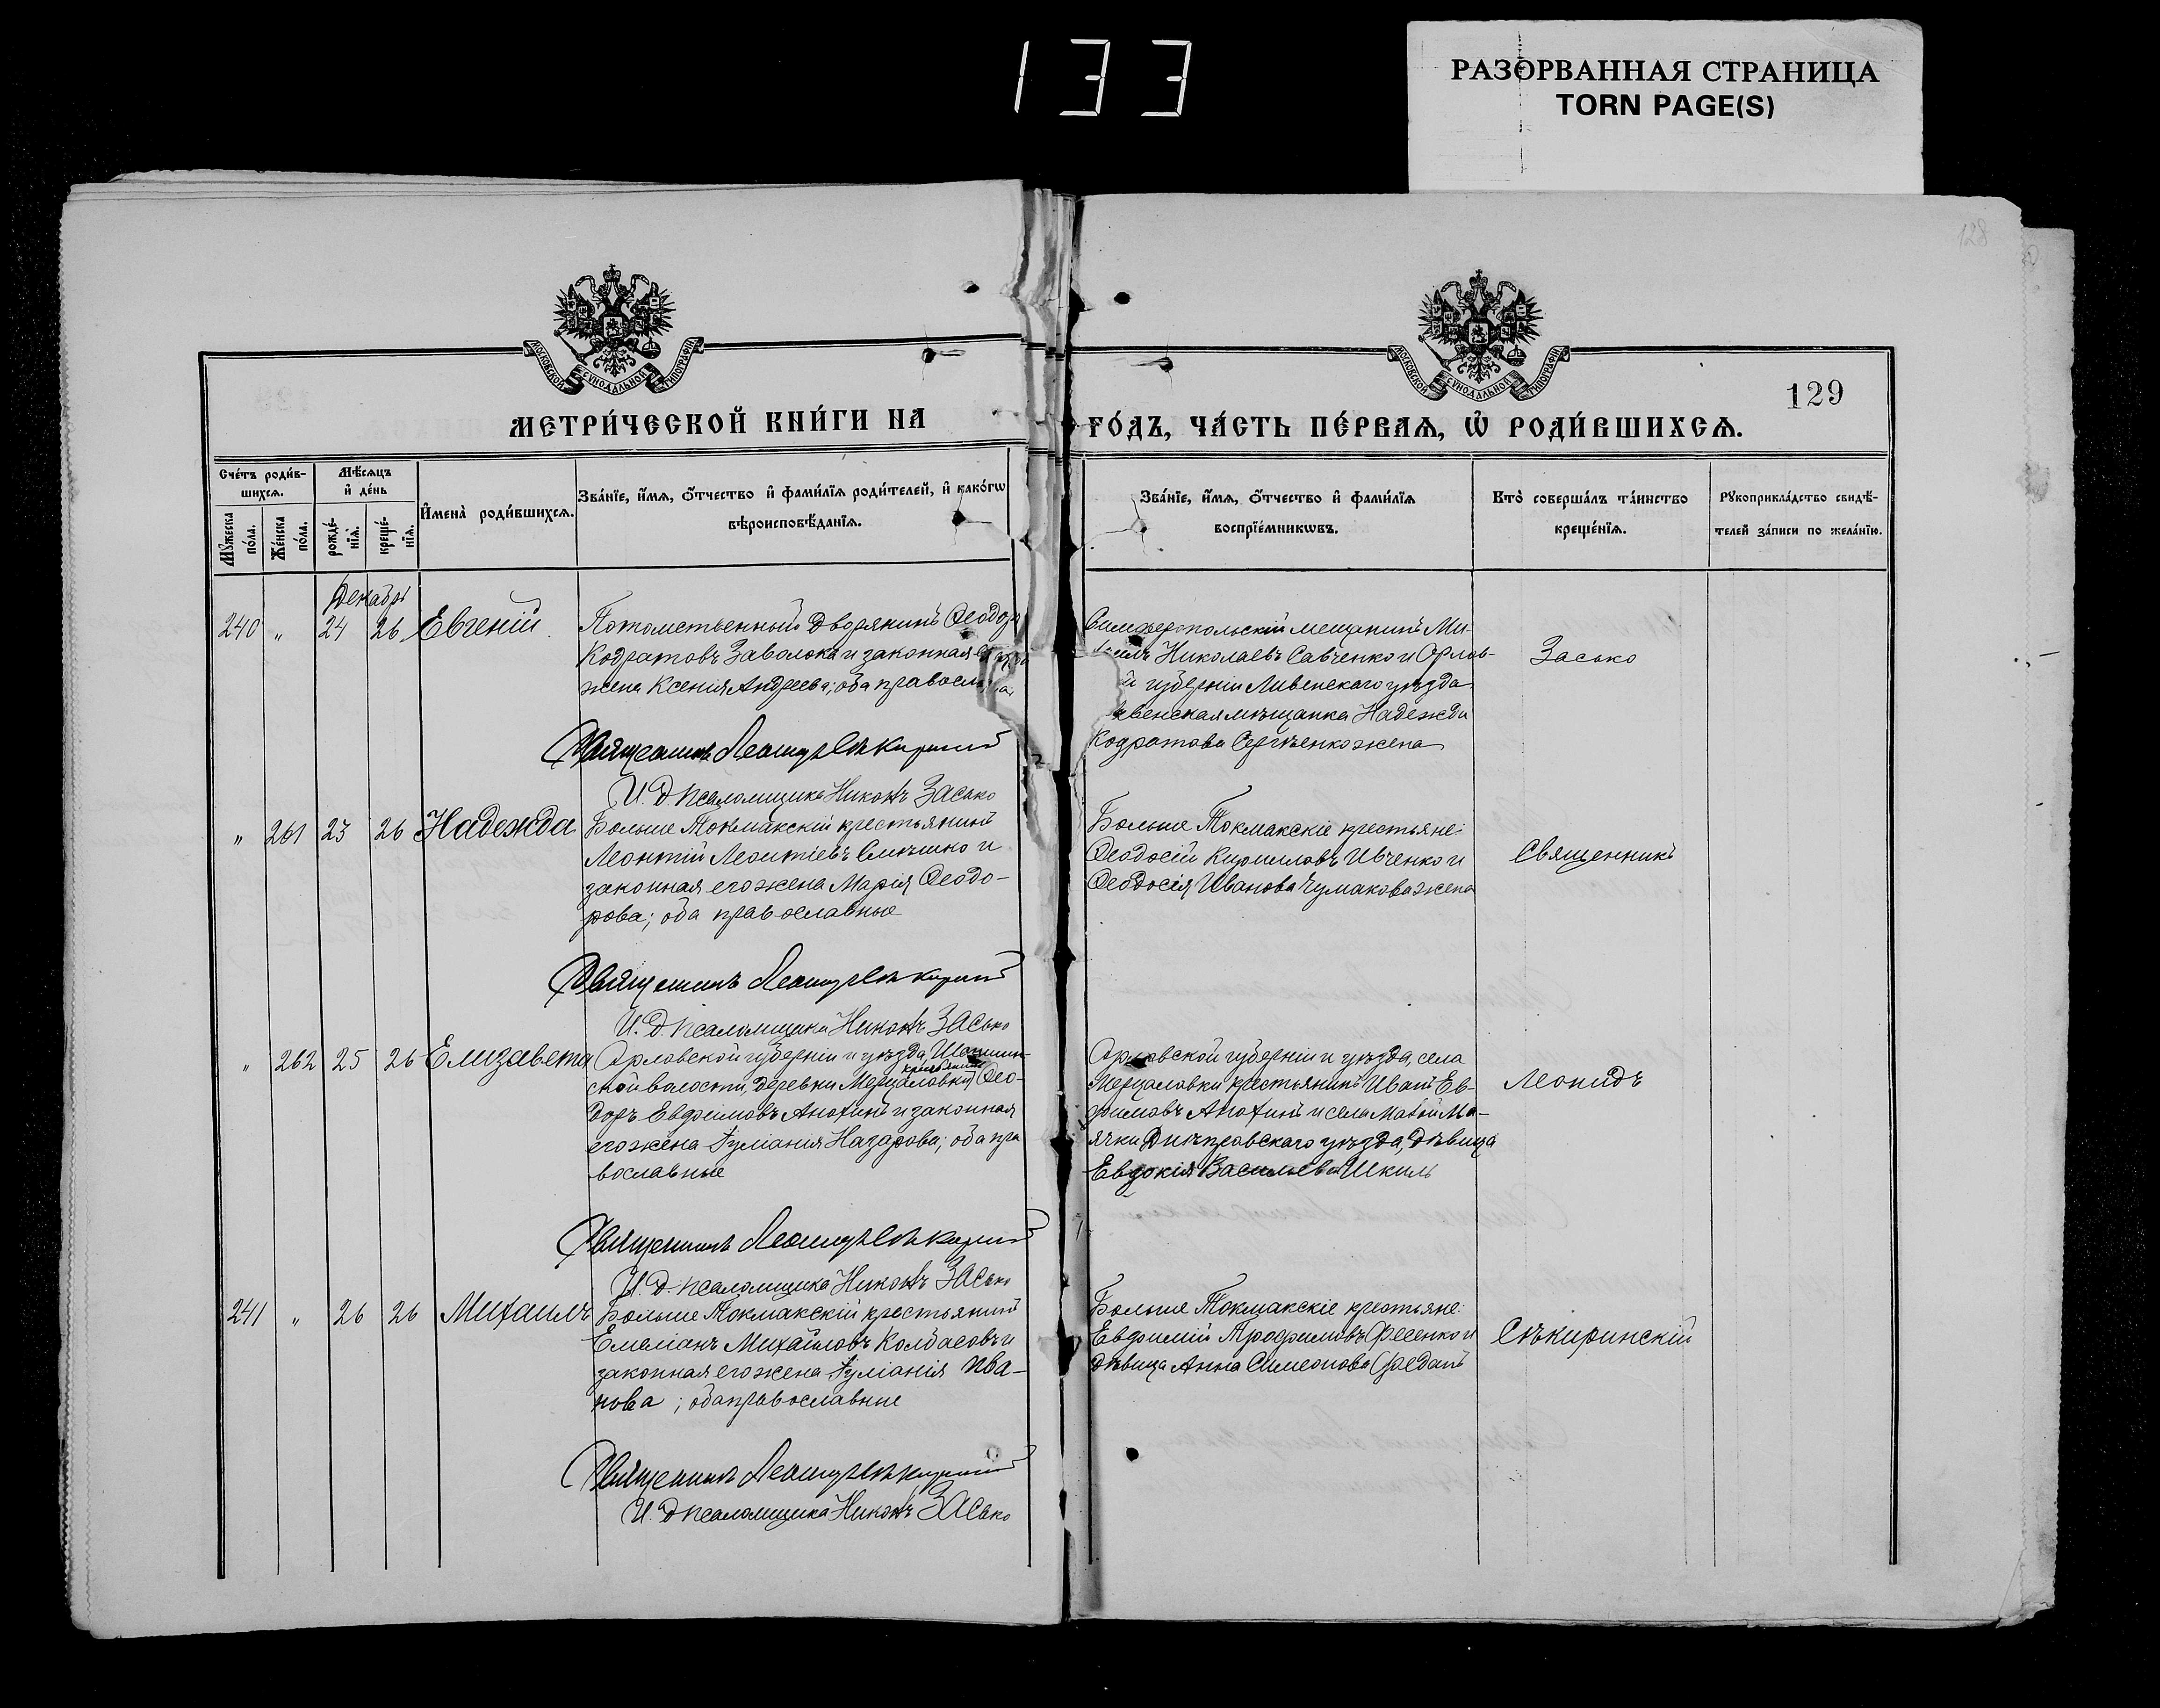 133
РАЗОРВАННАЯ СТРАНИЦА
TORN PAGE(S)
128
МОСКОВСКОЙ СУНОДАЛЬНОЙ ТИПОГРАФІИ
МОСКОВСКОЙ СУНОДАЛЬНОЙ ТИПОГРАФІИ
129
МЕТРИ́ЧЕСКОЙ КНИ́ГИ НА
ГО́ДЪ, ЧА́СТЬ ПЕ́РВАѦ, Ѡ҆ РОДИ́ВШИХСѦ.
Сче́тъ роди́в-
шихсѧ.
Мꙋ́жеска
по́ла.
Же́нска
по́ла.
Мѣ́сѧцъ
и҆ де́нь
рожде́-
нїѧ̀.
креще́-
нїѧ.
И҆мена̀ роди́вшихсѧ.
Зва́нїе, и҆́мѧ, ѻ҆́тчество и҆ фами́лїѧ роди́телей, и҆ како́гѡ
вѣроисповѣ́данїѧ.
Зва́нїе, и҆́мѧ, ѻ҆́тчество и҆ фами́лїѧ
воспрїе́мникѡвъ.
Кто̀ соверша́лъ та́инство
креще́нїѧ.
Рꙋкоприкла́дство свидѣ́-
телей за́писи по жела́нїю.
Декабрь
240 " 24 26 Евгеній
Потомственный дворянинъ Ѳеодоръ
Кодратовъ Заволока и законная его
жена Ксенія Андреева; оба правосл
Священникъ Леонидъ Сѣкиринскій
И. д. псаломщика Никонъ Засько
Симферопольскій мещанинъ Ми-
хаилъ Николаевъ Савченко и Орлов-
й губерніи Ливенскаго уѣзда
венская мѣщанка Надежда
Кодратова Сергѣенко жена
Засько
" 261 23 26 Надежда
Больше Токмакскій крестьянинъ
Леонтій Леонтіевъ Слюшко и
законная его жена Марія Ѳеодо-
рова; оба православные
Священникъ Леонидъ Сѣкиринскій
И. д. псаломщика Никонъ Засько
Больше Токмакскіе крестьяне:
Ѳеодосій Кирилловъ Ивченко и
Ѳеодосія Иванова Чумакова жена
Священникъ
" 262 25 26 Елизавета
Орловской губерніи и уѣзда,
ской волости, деревни Мерцаловки крестьянинъ Ѳео-
доръ Евфимовъ Анохинъ и законная
его жена Іуліанія Назарова; оба пра
вославные
Священникъ Леонидъ Сѣкиринскій
И. д. псаломщика Никонъ Засько
Орловской губерніи и уѣзда, села
Мерцаловки крестьянинъ Иванъ Ев-
фимовъ Анохинъ и села Малой Ма-
ячки Днѣпровскаго уѣзда, дѣвица
Евдокія Васильева Шкиль
Леонидъ
241 " 26 26 Михаилъ
Больше Токмакскій крестьянинъ
Емеліанъ Михайловъ Колбасовъ и
законная его жена Іуліанія Ива-
нова; оба православные
Священникъ Леонидъ Сѣкиринскій
И. д. псаломщика Никонъ Засько
Больше Токмакскіе крестьяне:
Евфимій Трофимовъ Фесенко и
дѣвица Анна Симеонова
Сѣкиринскій